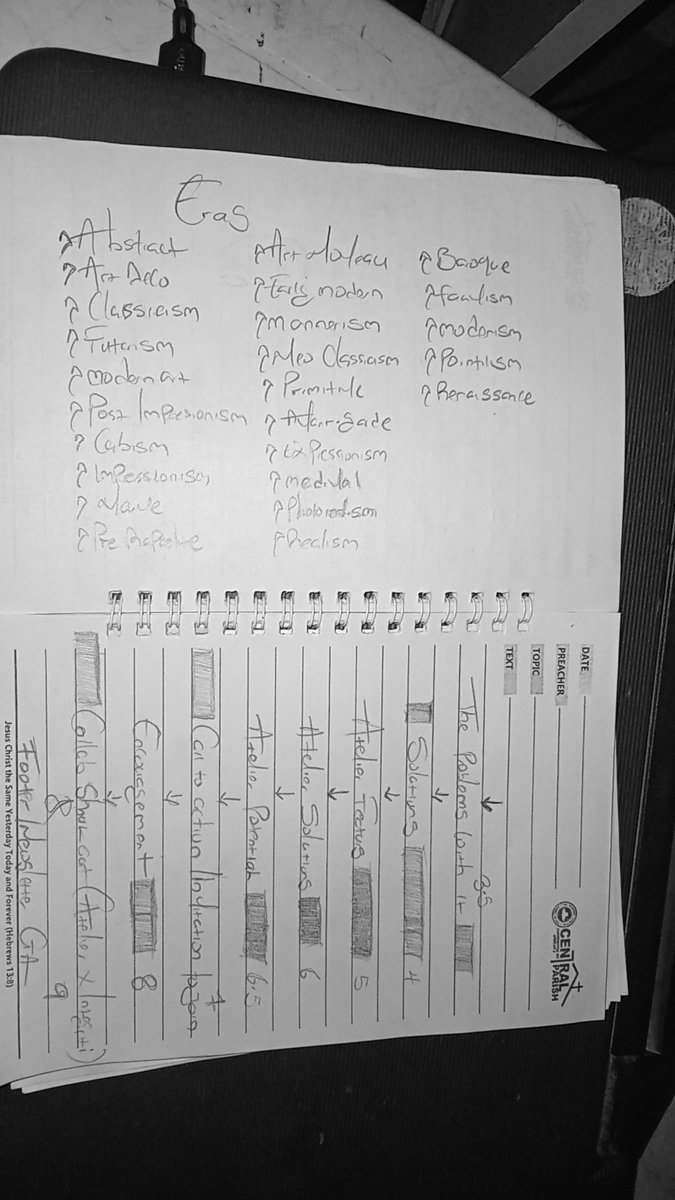 Eras
Abstract
Art Deco
Classicism
Futurism
modern art
Post Impresionism
Cubism
Impessionism
Naive
Art Noveau
Early modern
Mannerism
Neo Classiasm
Avant-gade
Expessionism
medival
Photorealism
Realism
Baroque
Fauvism
modernism
Pointilism
Renaissance
DATE
PREACHER
TOPIC
TEXT
CENTRAL
PARISH
The Problems with it 3.5
Solutions 4
Atelier 5
Atelier Solutions 6
Atelier Potential 6.5
Call to action 7
8
Collab Shout out (Atelier x
9
Footer/
Jesus Christ the Same Yesterday Today and Forever (Hebrews 13:8)